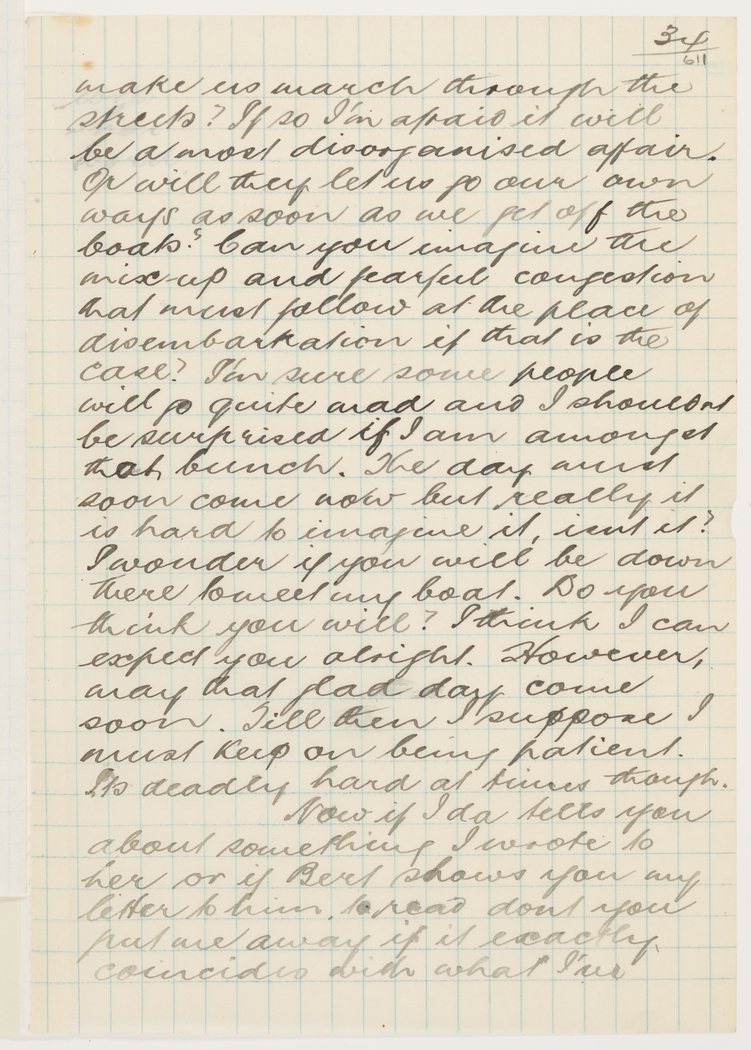 34
611
make us march through the
streets? If so I'm afraid it will
be a most disorganised affair.
Or will they let us go our own
ways as soon as we get off the
boats? Can you imagine the
mix-up and fearful congestion
that must follow at the place of
disembarkation if that is the
case? I'm sure some people
will go quite mad and I shouldnt
be surprised if I am amongst
that bunch. The day must
soon come now but really it
is hard to imagine it, isnt it?
I wonder if you will be down
there to meet my boat. Do you
think you will? I think I can
expect you alright. However,
may that glad day come
soon. Till then I suppose I
must keep on being patient.
Its deadly hard at times though.
Now if Ida tells you
about something I wrote to
her or if Bert shows you my
letter to him to read dont you
put me away if it exactly
coincides with what I've